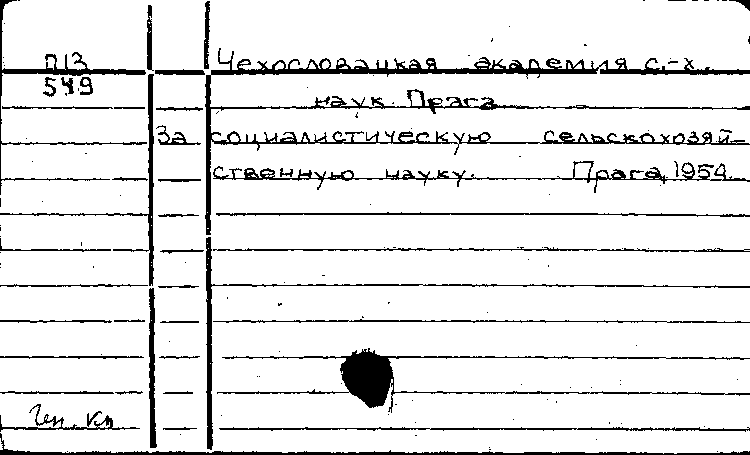 П13
549
Чехословацкая академия с.-х.
наук. Прага
За социалистическую сельскохозяй-
ственную науку. Прага, 1954
Ген. кп